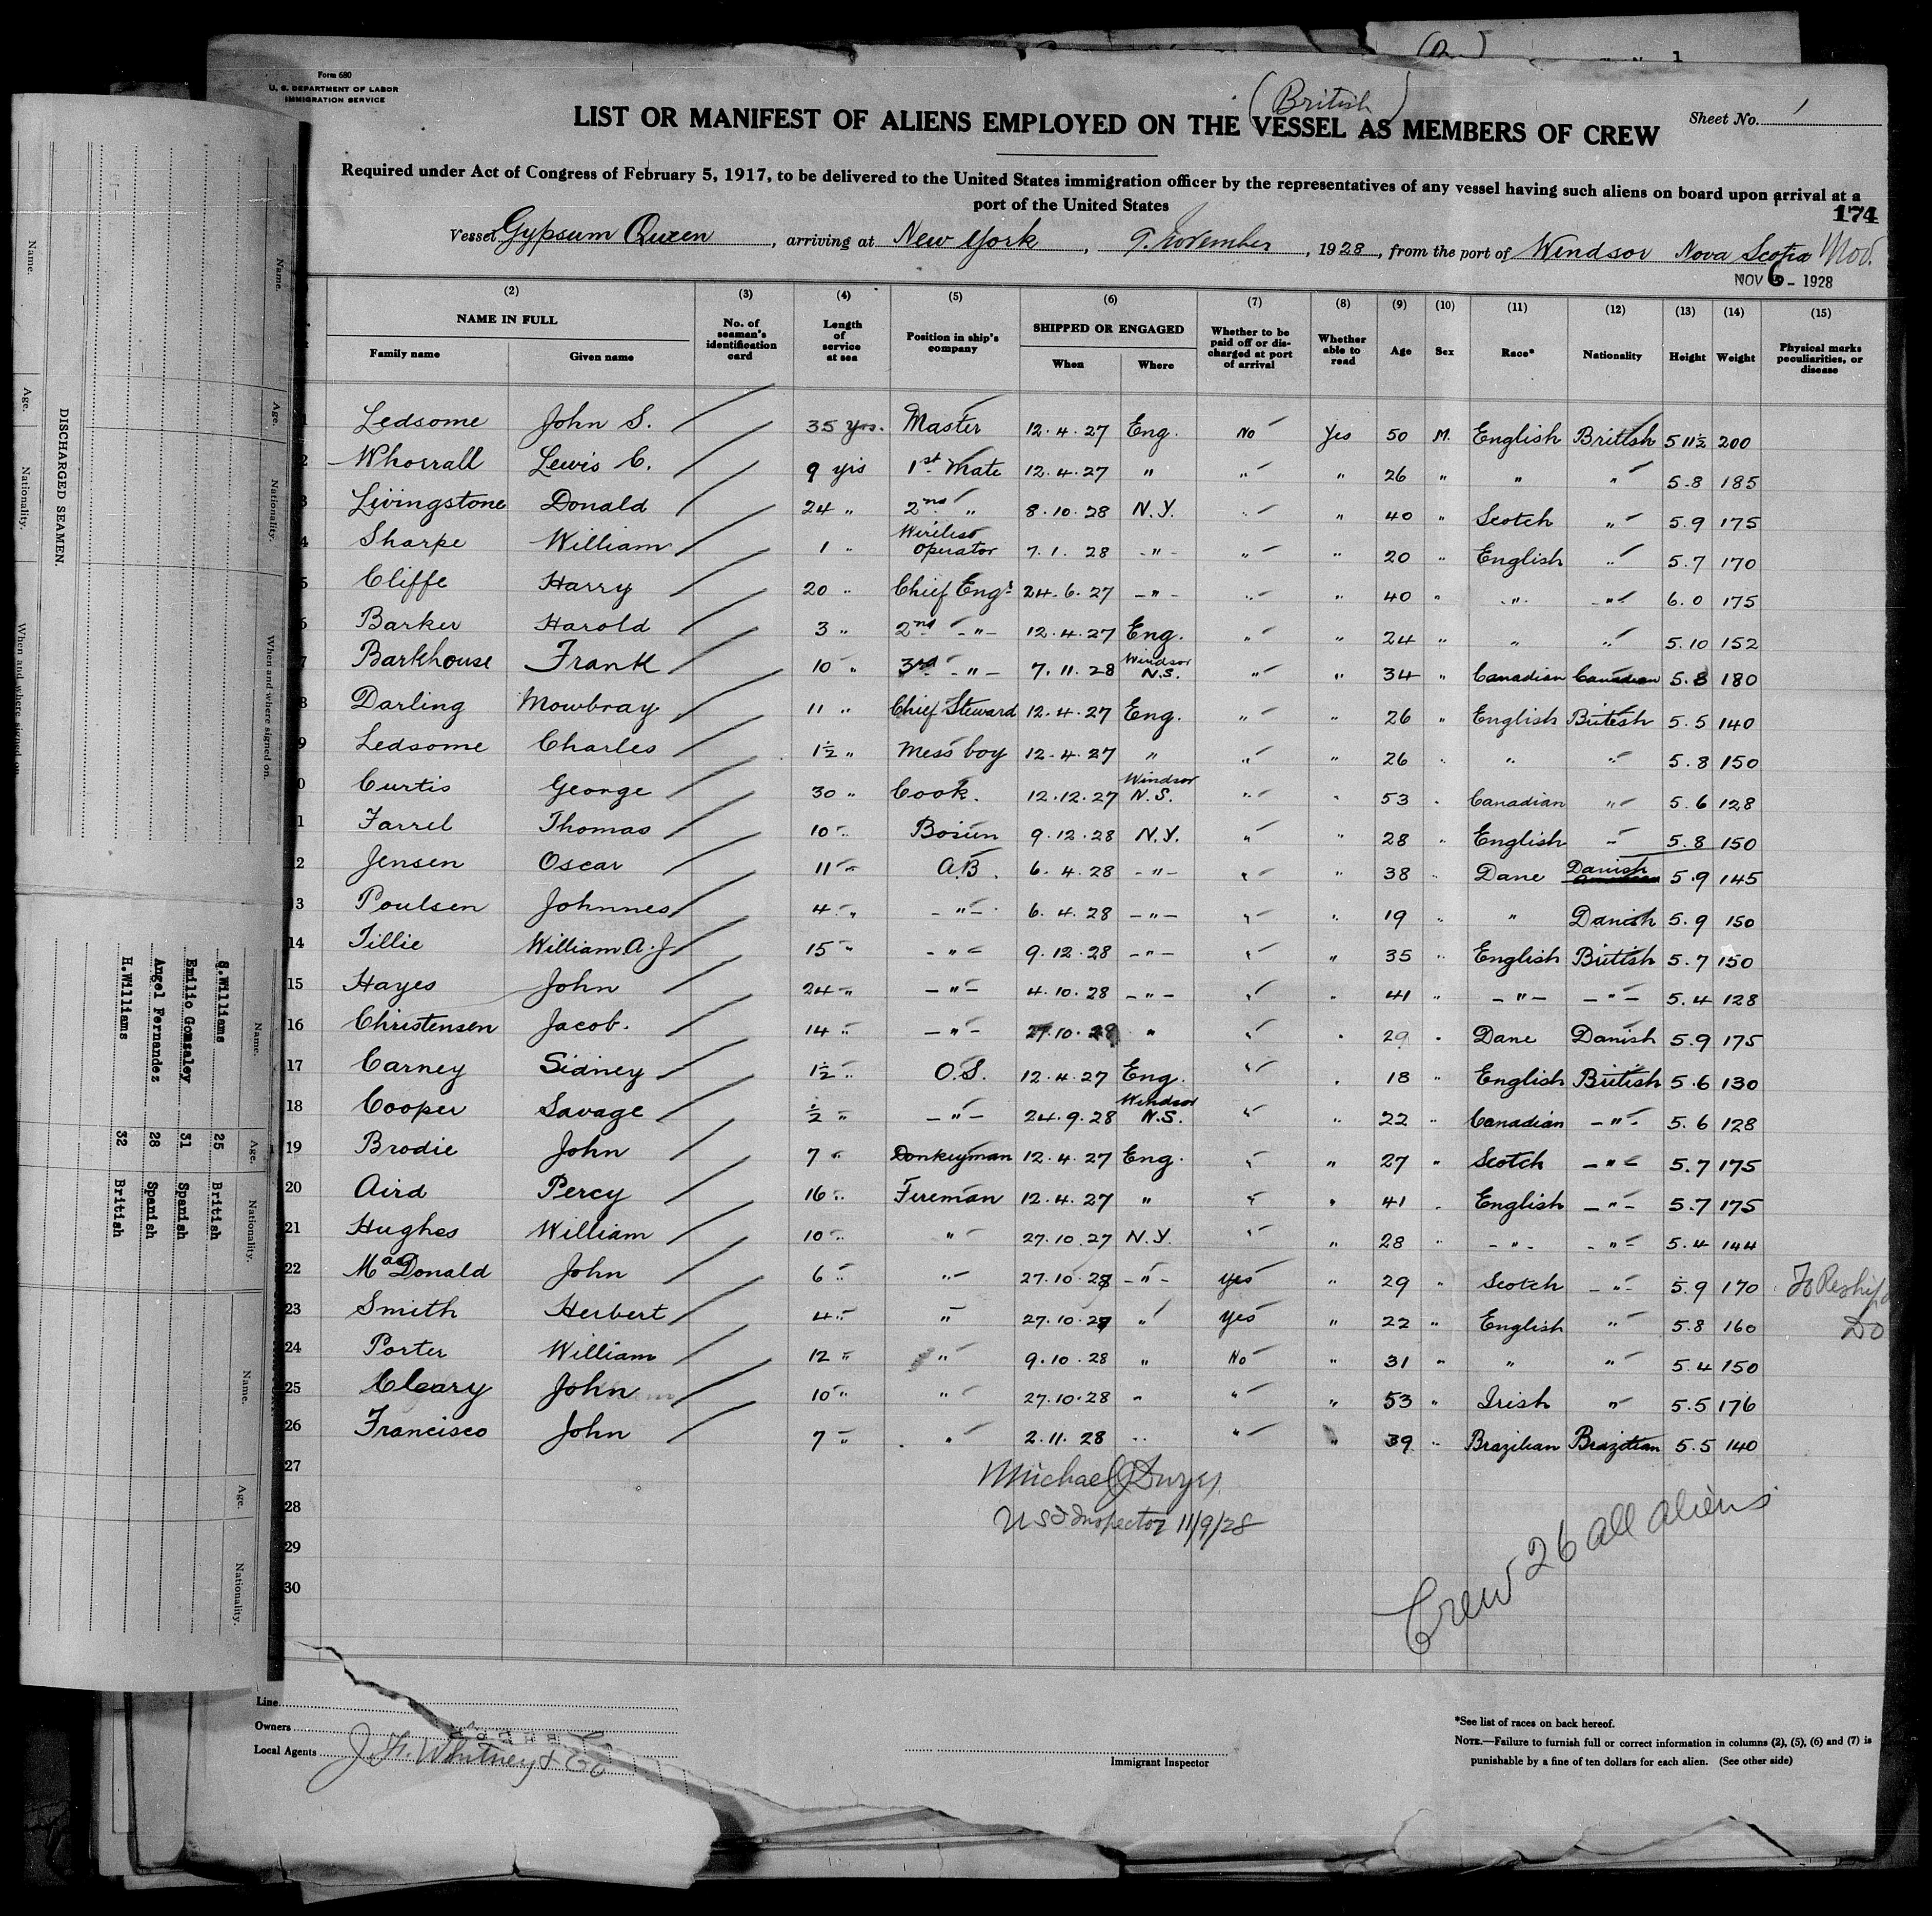 Form 680
U. S. DEPARTMENT OF LABOR
IMMIGRATION SERVICE
(British)
LIST OR MANIFEST OF ALIENS EMPLOYED ON THE VESSEL AS MEMBERS OF CREW
Sheet No. 1
Required under Act of Congress of February 5, 1917, to be delivered to the United States immigration officer by the representatives of any vessel having such aliens on board upon arrival at a
port of the United States
174
Vessel Gypsum Queen, arriving at New York, 9. November, 1928, from the port of Windsor Nova Scotia
NOV 6 - 1928
(2) (3) (4) (5) (6) (7) (8) (9) (10) (11) (12) (13) (14) (15)
NAME IN FULL Family name Given name No. of seaman's identification card Length of service at sea Position in ship's company SHIPPED OR ENGAGED When Where Whether to be paid off or discharged at port of arrival Whether able to read Age Sex Race* Nationality Height Weight Physical marks peculiarities, or disease
1 Ledsome John S. 35 yrs. Master 12.4.27 Eng. No Yes 50 M. English British 5 11½ 200
2 Whorrall Lewis C. 9 yrs 1st Mate 12.4.27 " " " 26 " " " 5.8 185
3 Livingstone Donald 24 " 2nd " 8.10.28 N.Y. " " 40 " Scotch " 5.9 175
4 Sharpe William 1 " Wireless Operator 7.1.28 -"- " " 20 " English " 5.7 170
5 Cliffe Harry 20 " Chief Engr. 24.6.27 -"- " " 40 " " -"- 6.0 175
6 Barker Harold 3 " 2nd -"- 12.4.27 Eng. " " 24 " " " 5.10 152
7 Barkhouse Frank 10 " 3rd -"- 7.11.28 Windsor N.S. " " 34 " Canadian Canadian 5.8 180
8 Darling Mowbray 11 " Chief Steward 12.4.27 Eng. " " 26 " English British 5.5 140
9 Ledsome Charles 1½ " Mess boy 12.4.27 " " " 26 " " " 5.8 150
10 Curtis George 30 " Cook. 12.12.27 Windsor N.S. " " 53 " Canadian " 5.6 128
11 Farrel Thomas 10 " Bosun 9.12.28 N.Y. " " 28 " English " 5.8 150
12 Jensen Oscar 11 " A.B. 6.4.28 -"- " " 38 " Dane Danish 5.9 145
13 Poulsen Johnnes 4 " -"- 6.4.28 -"- " " 19 " " Danish 5.9 150
14 Tillie William A.J 15 " -"- 9.12.28 -"- " " 35 " English British 5.7 150
15 Hayes John 24 " -"- 4.10.28 -"- " " 41 " -"- -"- 5.4 128
16 Christensen Jacob. 14 " -"- 27.10.28 " " " 29 " Dane Danish 5.9 175
17 Carney Sidney 1½ " O.S. 12.4.27 Eng. " " 18 " English British 5.6 130
18 Cooper Savage ½ " -"- 24.9.28 Windsor N.S. " " 22 " Canadian -"- 5.6 128
19 Brodie John 7 " Donkeyman 12.4.27 Eng. " " 27 " Scotch -"- 5.7 175
20 Aird Percy 16 " Fireman 12.4.27 " " " 41 " English -"- 5.7 175
21 Hughes William 10 " " 27.10.27 N.Y. " " 28 " -"- -"- 5.4 144
22 MacDonald John 6 " " 27.10.28 -"- yes " 29 " Scotch -"- 5.9 170 To Reship
23 Smith Herbert 4 " " 27.10.27 " Yes " 22 " English " 5.8 160 Do
24 Porter William 12 " " 9.10.28 " No " 31 " " " 5.4 150
25 Cleary John 10 " " 27.10.28 " " " 53 " Irish " 5.5 176
26 Francisco John 7 " " 2.11.28 " " " 39 " Brazilian Brazilian 5.5 140
27
28
29
30
Inspector 11/9/28
Crew 26 all aliens
Line
Owners
Local Agents J. F. Whitney & Co
Immigrant Inspector
*See list of races on back hereof.
NOTE.—Failure to furnish full or correct information in columns (2), (5), (6) and (7) is
punishable by a fine of ten dollars for each alien. (See other side)
DISCHARGED SEAMEN.
Name. Age. Nationality. When and where signed on.
Name. Age. Nationality.
S.Williams 25 British
Emilio Gomzaley 31 Spanish
Angel Fernandez 28 Spanish
H.Williams 32 British
Name. Age. Nationality.